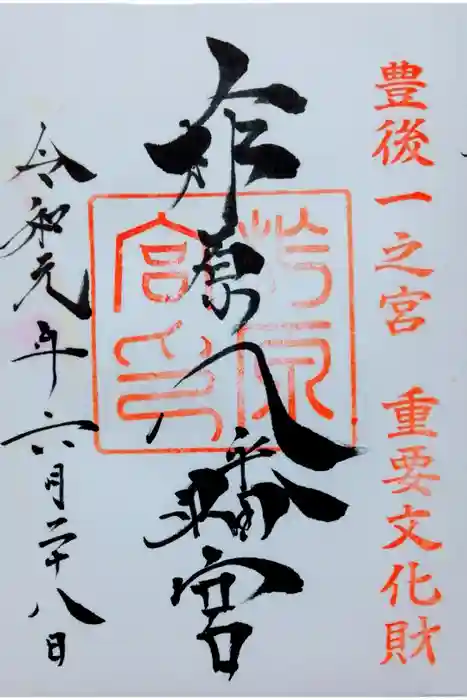 豊後一之宮 重要文化財
柞原八幡宮
令和元年六月二十八日